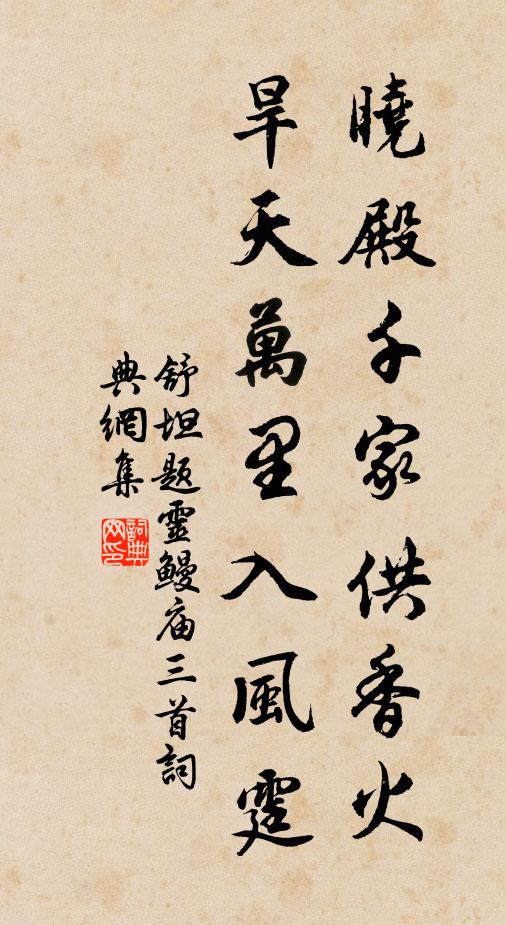 曉殿千家供香火
旱天萬里入風霆
舒坦題靈鰻庙三首詞
典網集
詞典網印